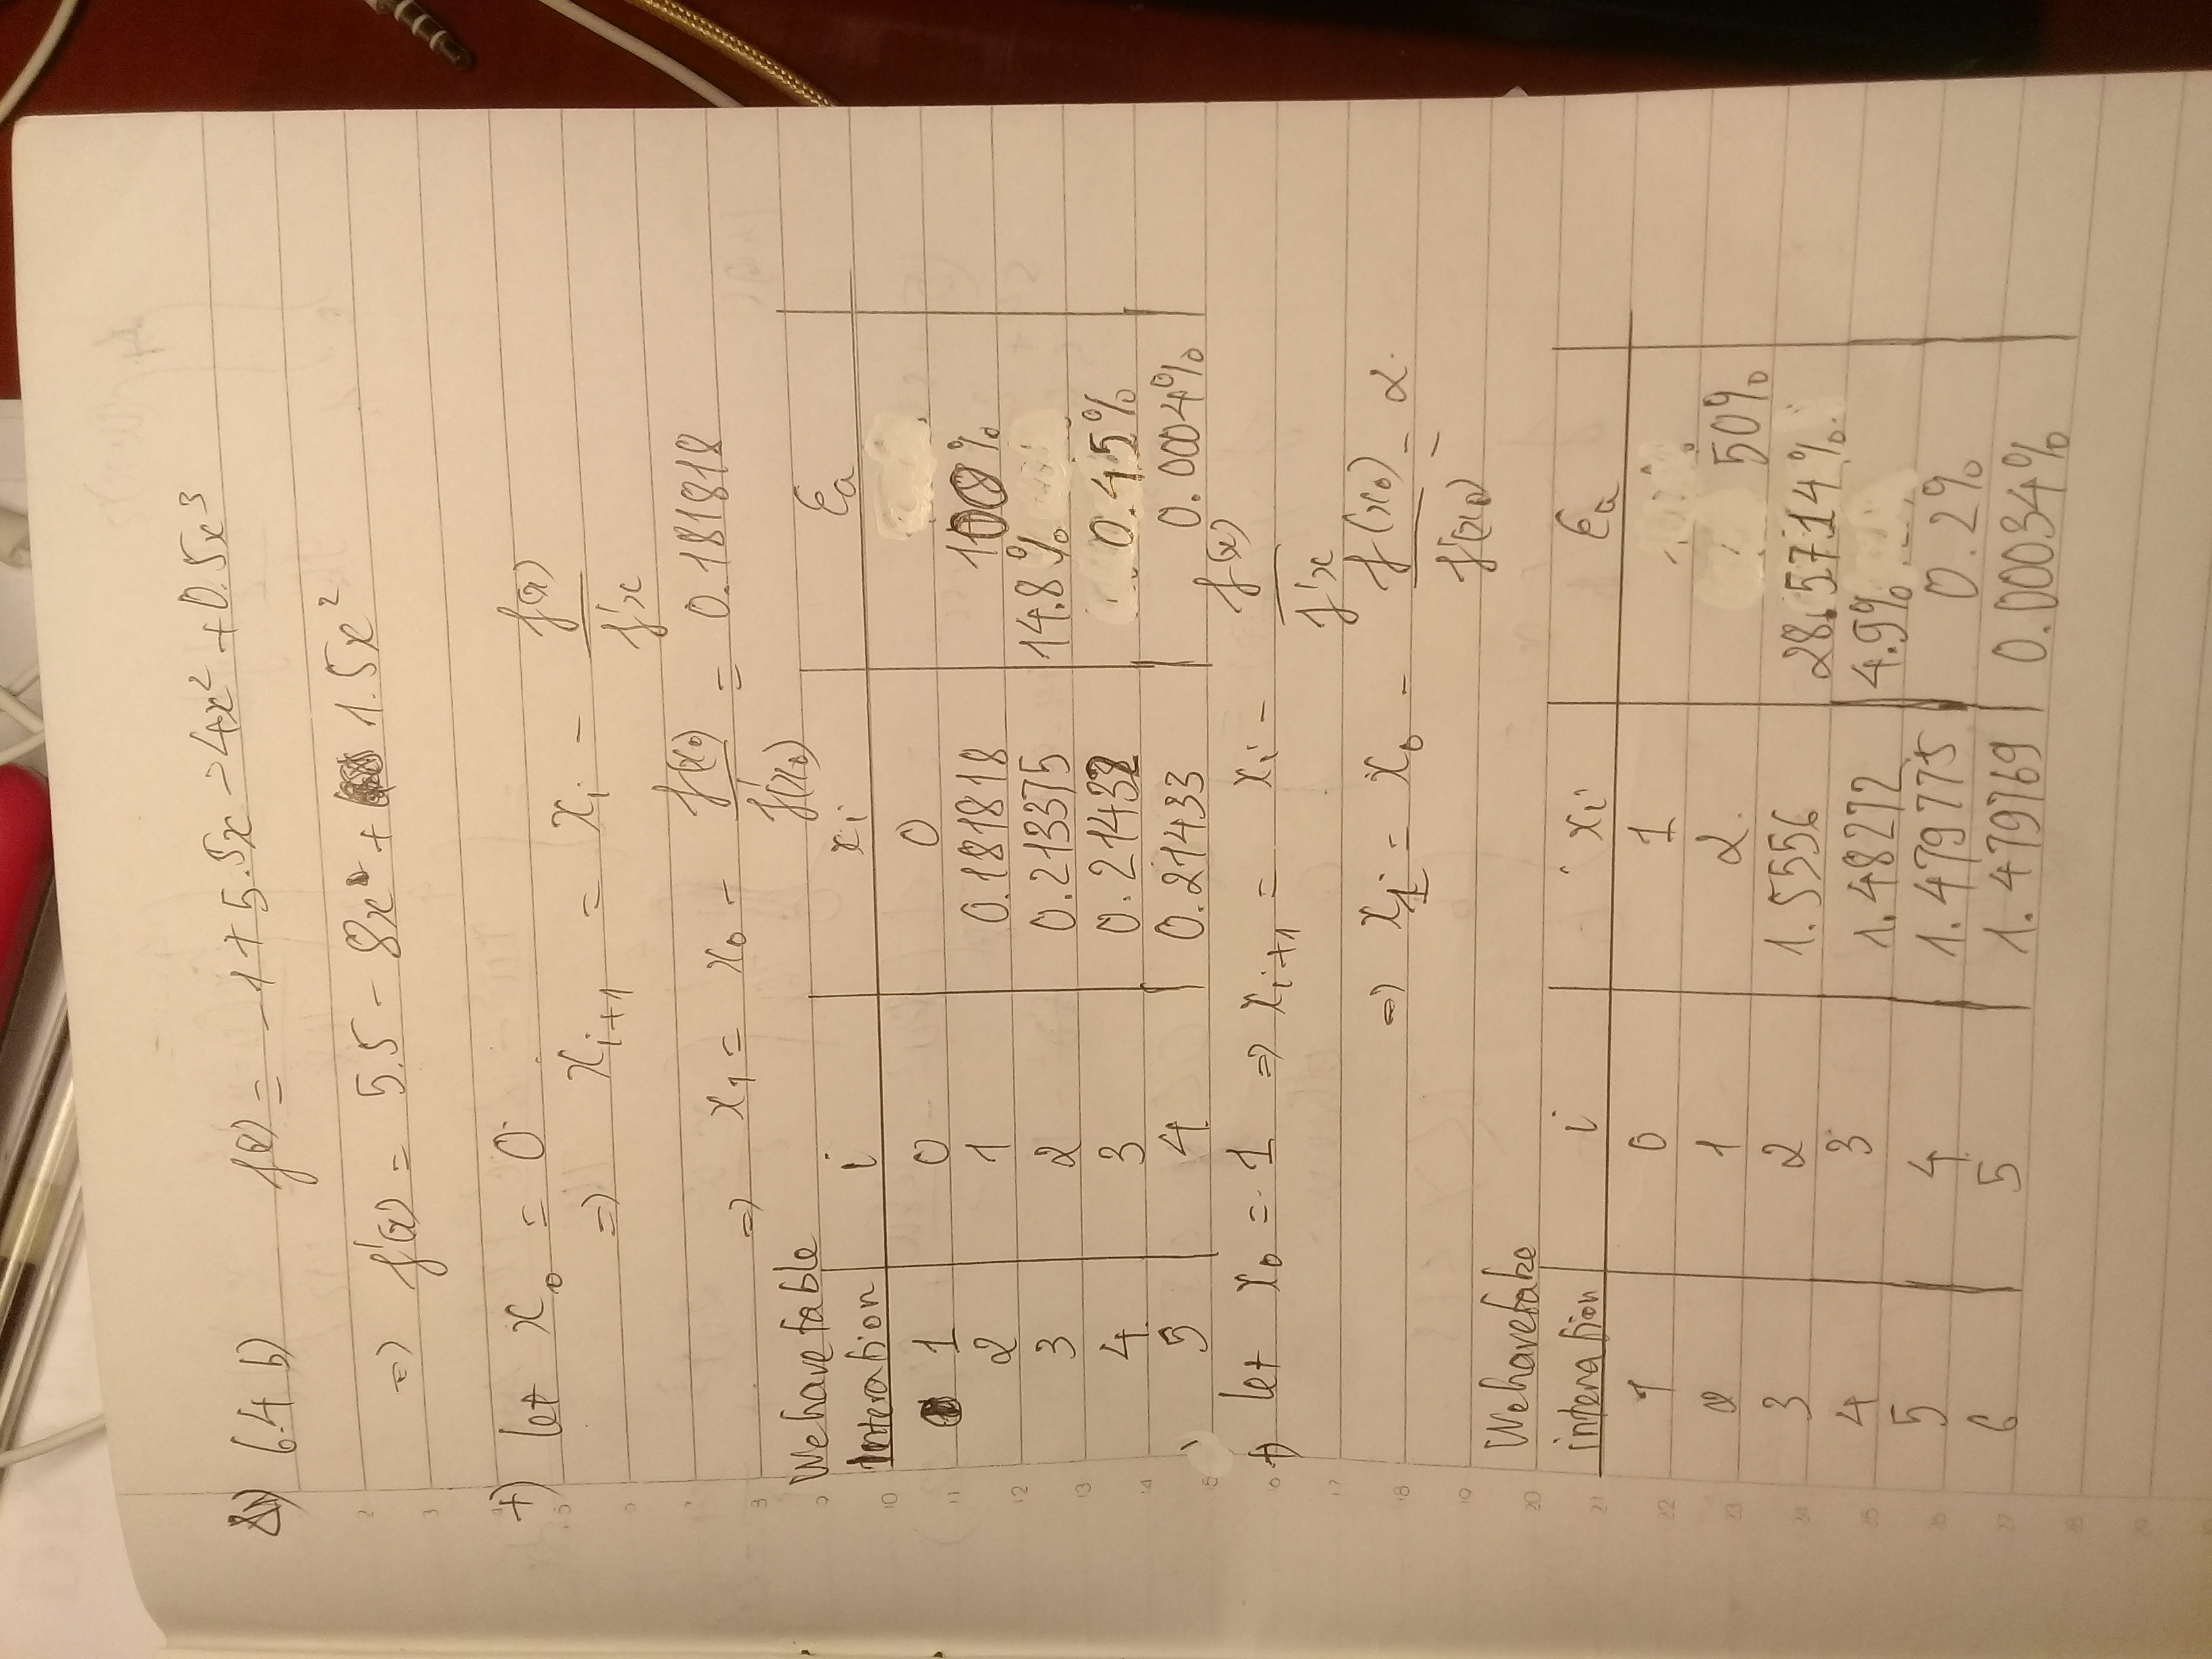 6.4 b) f(x) = -1 + 5.5x - 4x² + 0.5x³
=> f'(x) = 5.5 - 8x + 1.5x²
+) let x₀ = 0
=> xᵢ₊₁ = xᵢ - f(x) / f'x
=> x₁ = x₀ - f(x₀) / f'(x₀) = 0.181818
We have table
Interation i xᵢ Ɛₐ
1 0 0
2 1 0.181818 100%
3 2 0.213375 14.8%
4 3 0.21432 0.45%
5 4 0.21433 0.0004%
+) let x₀ = 1 => xᵢ₊₁ = xᵢ - f(x) / f'x
=> x₁ = x₀ - f(x₀) / f'(x₀) = 2.
We have
interation i xᵢ Ɛₐ
1 0 1
2 1 2. 50%
3 2 1.5556 28.5714%
4 3 1.48272 4.9%
5 4 1.479775 0.2%
6 5 1.479769 0.00034%